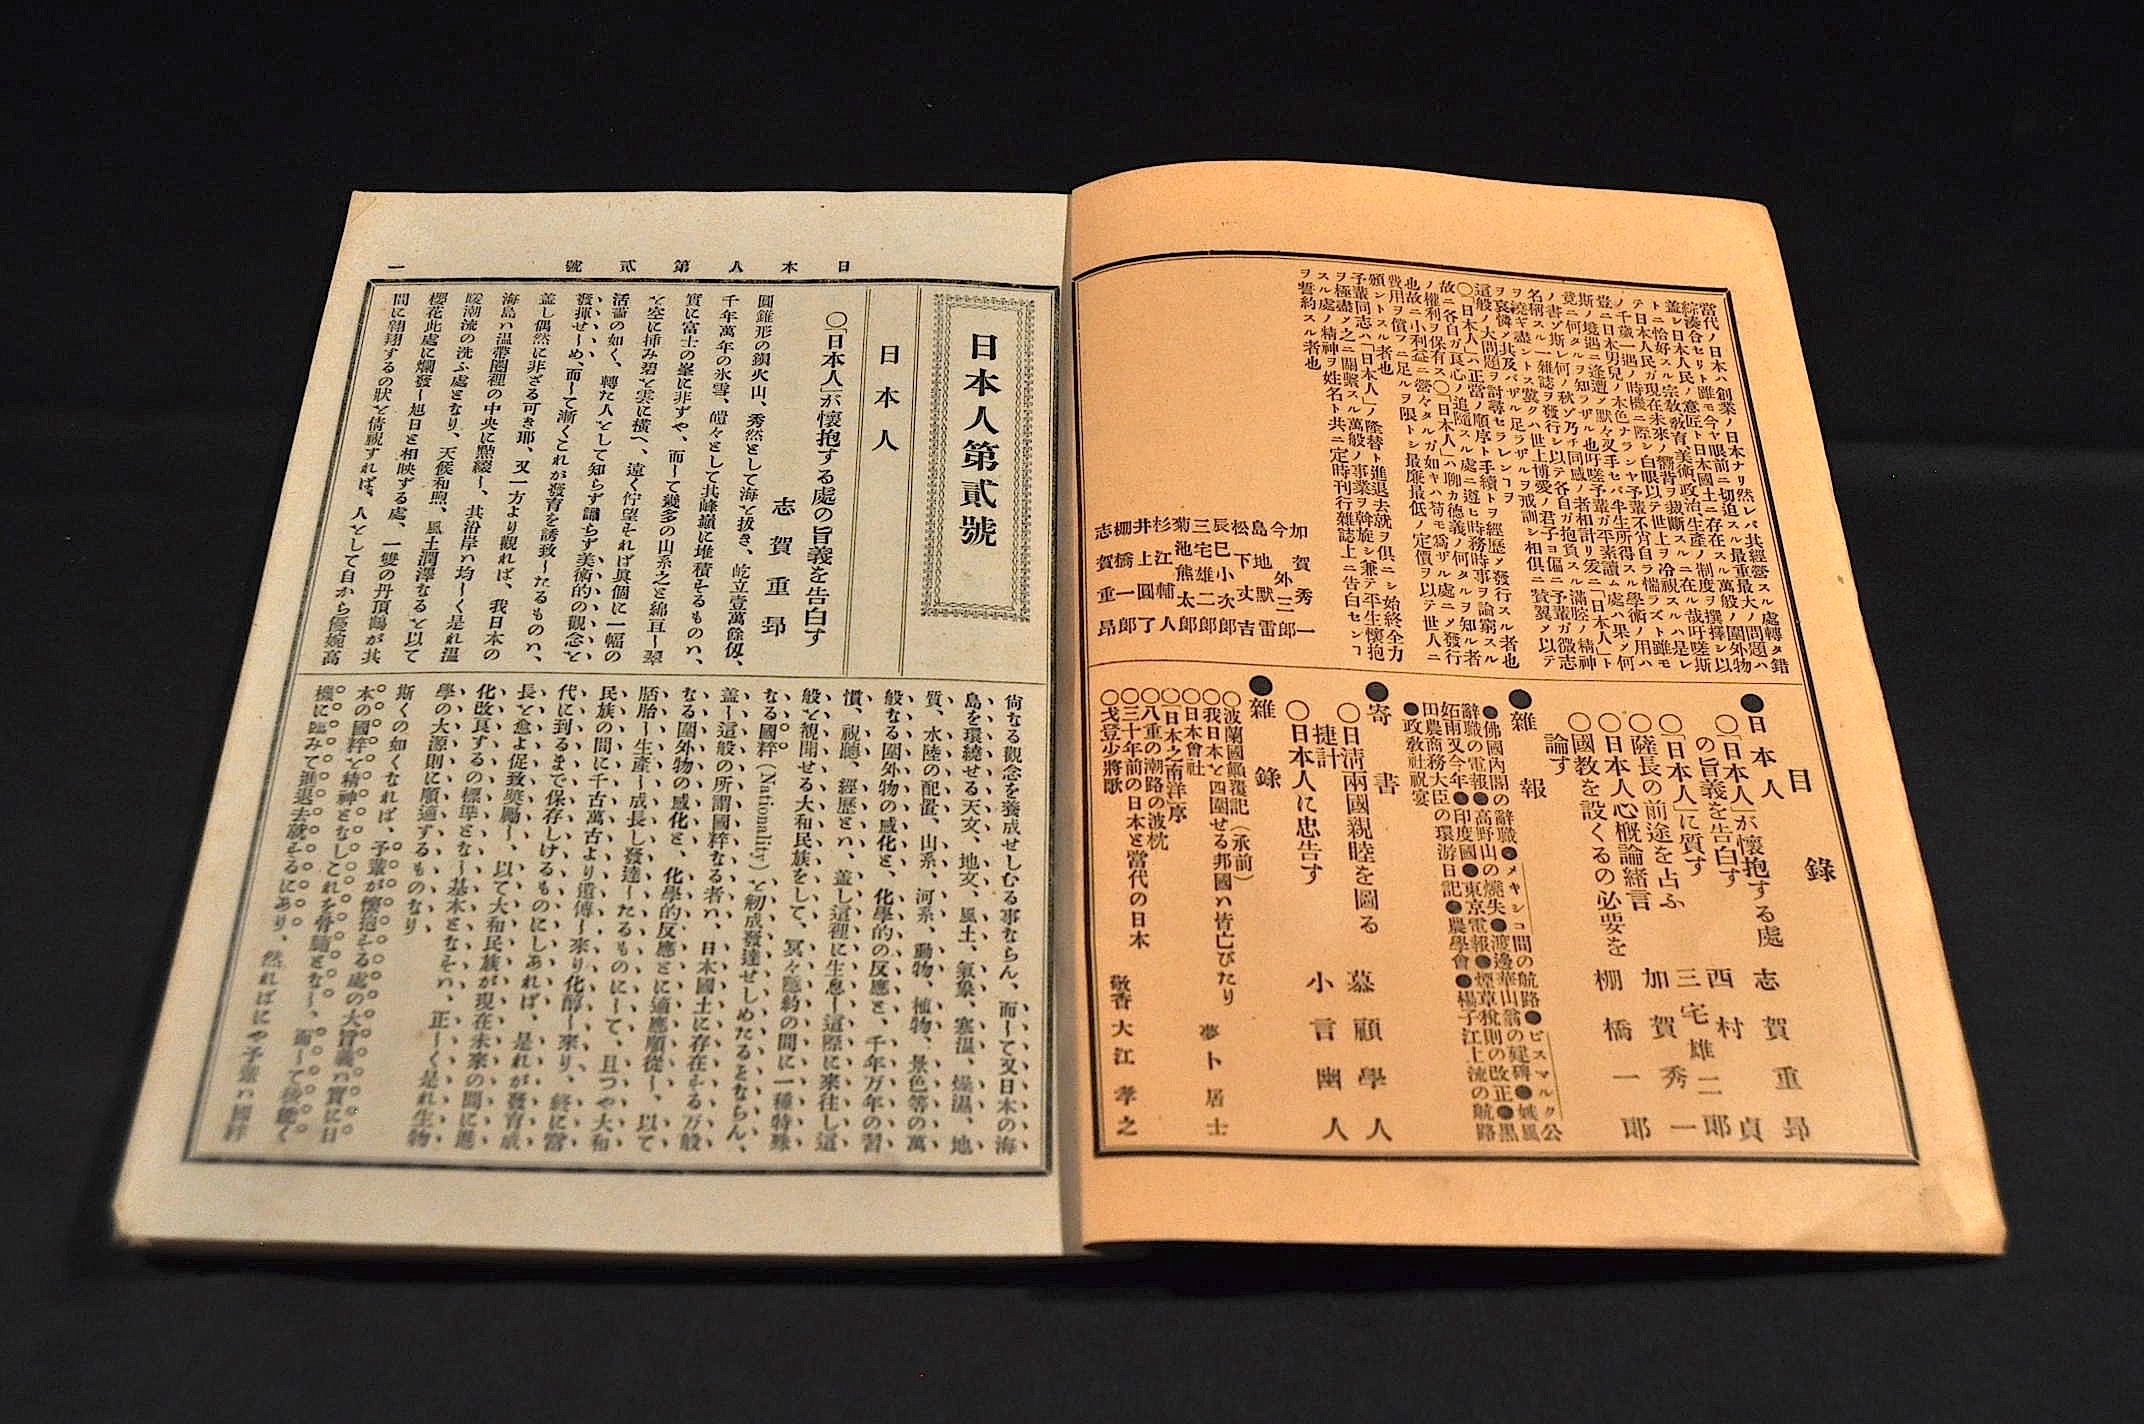 當代ノ日本ハ創業ノ日本ナリ然レバ其經營スル處轉タ錯
綜湊合セリト雖モ今ヤ眼前ニ切迫スル最重最大ノ問題ハ
蓋シ日本人民ノ意匠ト日本國土ニ存在スル萬般ノ圍外物
トニ恰好スル宗教敎育美術政治生產ノ制度ヲ選擇シ以
テ日本人民ガ現在未來ノ嚮背ヲ裁斷スルニ在ル哉吁嗟斯
ノ千歲一遇ノ時機ニ際シ白眼以テ世上ヲ冷視スルハ是レ
豈ニ日本男兒ノ本色ナランヤ予輩不肖自ラ惴ラズト雖モ
斯ノ境遇ニ逢遭シ默々叉手セバ半生所得スル學術ノ用ハ
竟ニ何タルヲ知ラザル也吁嗟予輩ガ平素讀ム處ハ果シ何
ノ書ゾ斯レ何ノ秋ゾ乃チ同感ノ者相計リ爰ニ「日本人」ト
名稱スル一雜誌ヲ發行シ以テ各自ガ抱負スル滿腔ノ精神
ヲ澆ギ盡ントス冀クハ世上博愛ノ君子ヨ偏ニ予輩ガ微志
ヲ哀憐シ其及バザル足ラザルヲ戒訓シ相俱ニ賛翼シ以テ
這般ノ大問題ヲ討尋セラレンヿヲ
〇「日本人」ハ正當ノ順序ト手續トヲ經歷シ發行スル者也
故ニ各自ガ良心ノ追隨スル處ニ遵ヒ時務時事ヲ論窮スル
ノ權利ヲ保有ス〇「日本人」ハ聊カ德義ノ何タルヲ知ル者
也故ニ小利益ニ營々タルガ如キハ苟モ爲ザル處ニシ發行
費用ヲ償フニ足ルヲ限トシ最廉最低ノ定價ヲ以テ世人ニ
頒ントスル者也
予輩同志ハ「日本人」ノ隆替ト進退去就ヲ俱ニシ始終全力
ヲ極盡シ之ニ關繫スル萬般ノ事業ヲ斡旋シ兼テ平生懷抱
スル處ノ精神ヲ姓名ト共ニ定時刊行雜誌上ニ告白センヿ
ヲ誓約スル者也
加賀秀一
今外三郎
島地默雷
松下丈吉
辰巳小次郎
三宅雄二郎
菊池熊太郎
杉江輔人
井上圓了
棚橋一郎
志賀重昂
目錄
●日本人
〇「日本人」が懷抱する處の旨義を告白す 志賀重昂
〇「日本人」に質す 西村貞
〇薩長の前途を占ふ 三宅雄二郎
〇日本人心槪論緖言 加賀秀一
〇國教を設くるの必要を論す 棚橋一郎
●雜報
●佛國內閣の辭職●メキシコ間の航路●ビスマルク公
辭職の電報●高野山の燒失●渡邊華山翁の建碑●颶風
妬雨又今年●印度國●東京電報●煙草稅則の改正●黑
田農商務大臣の環游日記●農學會●楊子江上流の航路
●政敎社祝宴
●寄書
〇日淸兩國親睦を圖る捷計 慕顧學人
〇日本人に忠告す 小言幽人
●雜錄
〇波蘭國顚覆記(承前)
〇我日本と四圍せる邦國ハ皆亡びたり 夢卜居士
〇日本會社
〇「日本之南洋」序
〇八重の潮路の波枕
〇三十年前の日本と當代の日本
〇戈登少將歌 敬香大江孝之
日本人第貳號
一
日本人第貳號
日本人
〇「日本人」が懷抱する處の旨義を告白す
志賀重昂
圓錐形の鎖火山、秀然として海を拔き、屹立壹萬餘仭、
千年萬年の氷雪、皚々として其峰巓に堆積するものハ、
實に富士の峯に非ずや、而して幾多の山系之と綿亘し翠
を空に挿み碧を雲に橫へ、遠く佇望すれば眞個に一幅の
活畵の如く、轉た人をして知らず識らず美術的の觀念を
發揮せしめ、而して漸くこれが發育を誘致したるものハ、
蓋し偶然に非ざる可き耶、又一方より觀れば、我日本の
海島ハ温帶圈裡の中央に點綴し、其沿岸ハ均しく是れ温
暖潮流の洗ふ處となり、天候和煦、風土潤澤なるを以て
櫻花此處に爛發し旭日と相映ずる處、一雙の丹頂鶴が其
間に翱翔するの狀を倩視すれば、人をして自から優婉高
尙なる觀念を養成せしむる事ならん、而して又日本の海
島を環繞せる天文、地文、風土、氣象、寒温、燥濕、地
質、水陸の配置、山系、河系、動物、植物、景色等の萬
般なる圍外物の感化と、化學的の反應と、千年万年の習
慣、視聽、經歷とハ、蓋し這裡に生息し這際に來往し這
般を覩聞せる大和民族をして、冥々隱約の間に一種特殊
なる國粹(Nationality)を剏成發達せしめたるとならん、
蓋し這般の所謂國粹なる者ハ、日本國土に存在する万般
なる圍外物の感化と、化學的反應とに適應順從し、以て
胚胎し生產し成長し發達したるものにして、且つや大和
民族の間に千古萬古より遺傳し來り化醇し來り、終に當
代に到るまで保存しけるものにしあれば、是れが發育成
長を愈よ促致奬勵し、以て大和民族が現在未來の間に進
化改良するの標準となし基本となすハ、正しく是れ生物
學の大源則に順適するものなり
斯くの如くなれば、予輩が懷抱する處の大旨義ハ實に日
本の國粹を精神となしこれを骨髓となし、而して後能く
機に臨みて進退去就するにあり、然ればにや予輩ハ國粹